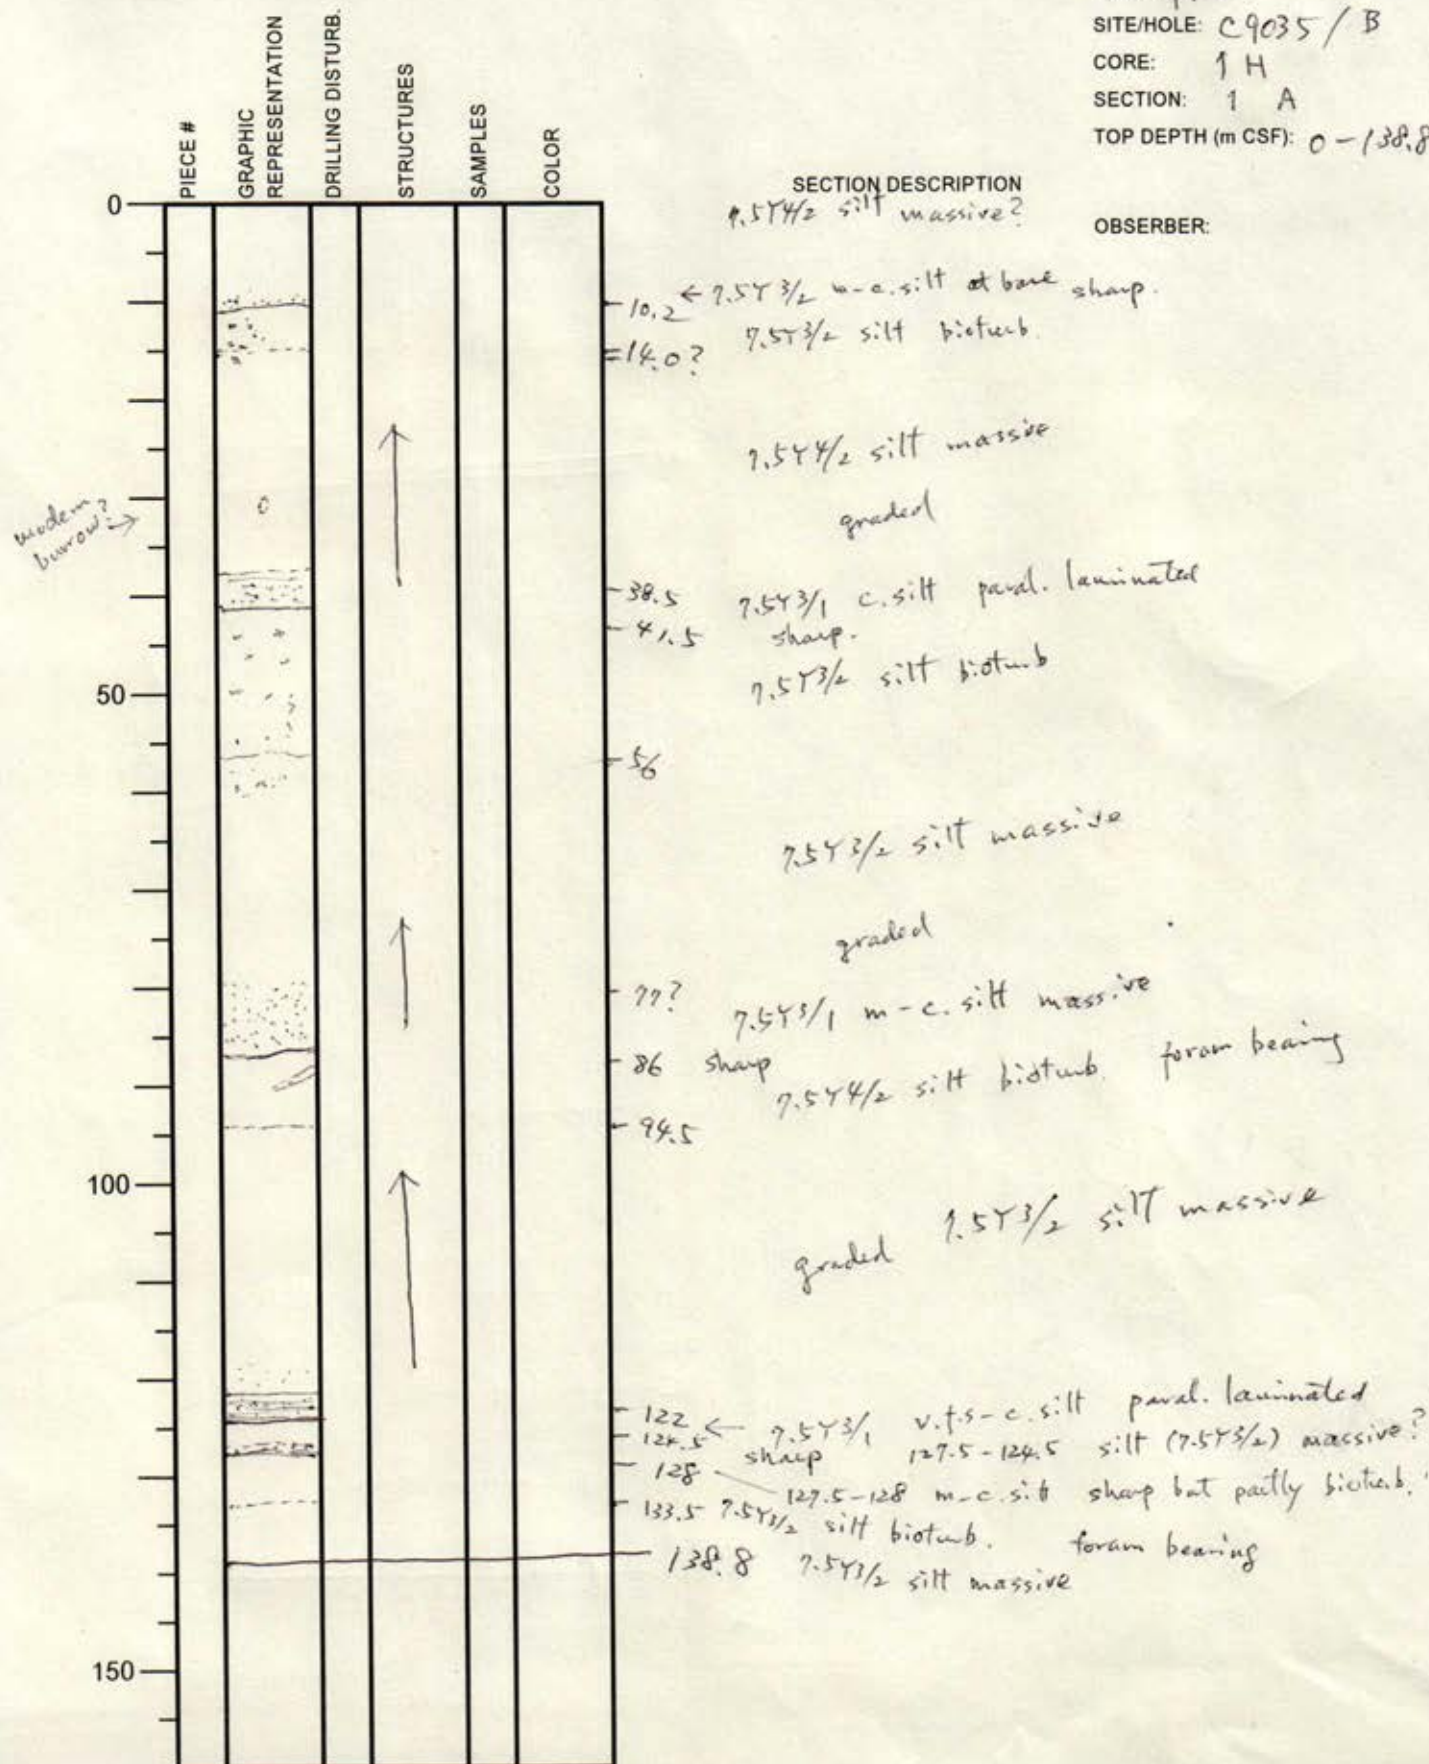 SITE/HOLE: C9035 / B
CORE: 1 H
SECTION: 1 A
TOP DEPTH (m CSF): 0 - 138.8
OBSERBER:
PIECE #
GRAPHIC REPRESENTATION
DRILLING DISTURB.
STRUCTURES
SAMPLES
COLOR
SECTION DESCRIPTION
0
7.5Y4/2 silt massive?
10.2 ← 7.5Y 3/2 m-c. silt at base sharp.
7.5Y3/2 silt bioturb.
14.0?
7.5Y4/2 silt massive
graded
modern?
burrow? →
38.5 7.5Y3/1 c. silt paral. laminated
41.5 sharp.
7.5Y3/2 silt bioturb
50
56
7.5Y3/2 silt massive
graded
77? 7.5Y3/1 m-c. silt massive
86 sharp
7.5Y4/2 silt bioturb. foram bearing
94.5
100
graded 7.5Y3/2 silt massive
122 ← 7.5Y3/1 v.f.s-c. silt paral. laminated
124.5 sharp 127.5-124.5 silt (7.5Y3/2) massive?
128 127.5-128 m-c. silt sharp but partly bioturb.
133.5 7.5Y3/2 silt bioturb. foram bearing
138.8 7.5Y3/2 silt massive
150